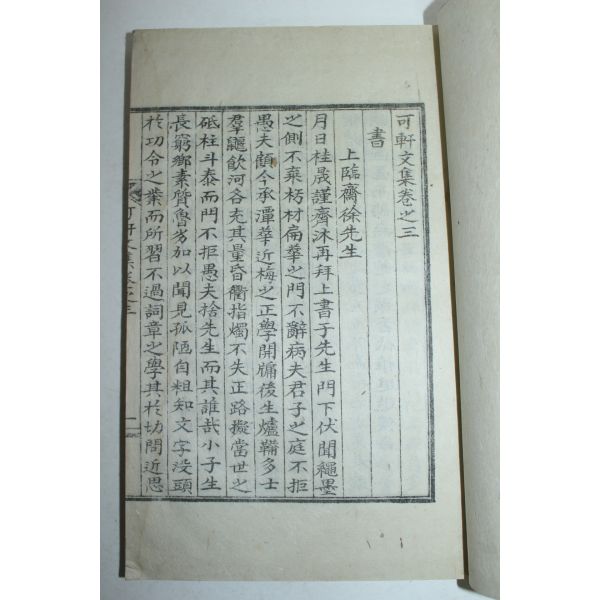 可軒文集卷之三
書
上臨齋徐先生
月日桂晟謹齋沐再拜上書于先生門下伏聞繩墨
之側不棄朽材扁華之門不辭病夫君子之庭不拒
愚夫顧今承潭華近梅之正學開牖後生爐鞴多士
羣鼴飮河各充其量昏衢指燭不失正路擬當世之
砥柱斗泰而門不拒愚夫捨先生而其誰哉小子生
長窮鄉素質魯劣加以聞見孤陋自粗知文字沒頭
於功令之業而所習不過詞章之學其於切問近思
可軒文集卷之三
一